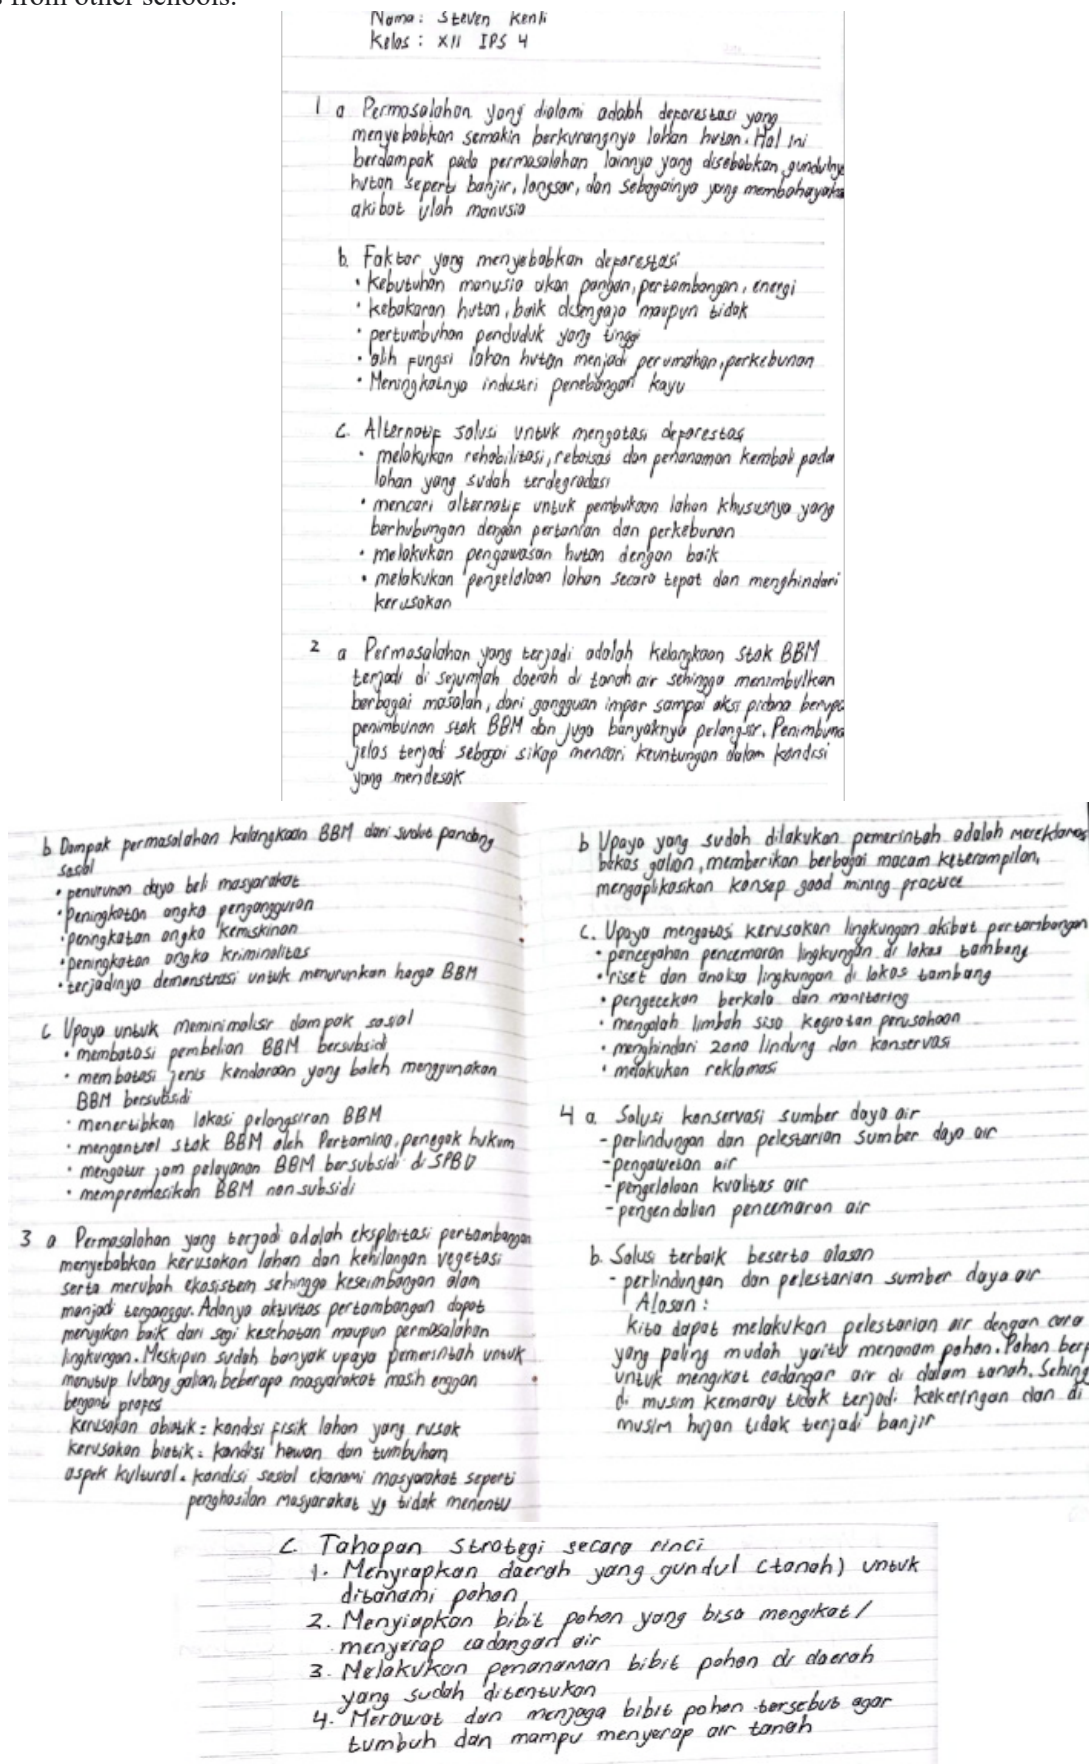 s from other schools.
Nama : Steven Kenli
Kelas : XII IPS 4
1 a Permasalahan yang dialami adalah deforestasi yang
menyebabkan semakin berkurangnya lahan hutan. Hal ini
berdampak pada permasalahan lainnya yang disebabkan gundulnya
hutan seperti banjir, longsor, dan sebagainya yang membahayakan
akibat ulah manusia
b. Faktor yang menyebabkan deforestasi
• Kebutuhan manusia akan pangan, pertambangan, energi
• kebakaran hutan, baik disengaja maupun tidak
• pertumbuhan penduduk yang tinggi
• alih fungsi lahan hutan menjadi perumahan, perkebunan
• Meningkatnya industri penebangan kayu
c. Alternatif solusi untuk mengatasi deforestasi
• melakukan rehabilitasi, reboisasi dan penanaman kembali pada
lahan yang sudah terdegradasi
• mencari alternatif untuk pembukaan lahan khususnya yang
berhubungan dengan pertanian dan perkebunan
• melakukan pengawasan hutan dengan baik
• melakukan pengelolaan lahan secara tepat dan menghindari
kerusakan
2 a Permasalahan yang terjadi adalah kelangkaan stok BBM
terjadi di sejumlah daerah di tanah air sehingga menimbulkan
berbagai masalah, dari gangguan impor sampai aksi pidana berupa
penimbunan stok BBM dan juga banyaknya pelangsir. Penimbuna
jelas terjadi sebagai sikap mencari keuntungan dalam kondisi
yang mendesak
b Dampak permasalahan kelangkaan BBM dari sudut pandang
sosial
• penurunan daya beli masyarakat
• Peningkatan angka pengangguran
• peningkatan angka kemiskinan
• peningkatan angka kriminalitas
• terjadinya demonstrasi untuk menurunkan harga BBM
c Upaya untuk meminimalisir dampak sosial
• membatasi pembelian BBM bersubsidi
• membatasi jenis kendaraan yang boleh menggunakan
BBM bersubsidi
• menertibkan lokasi pelangsiran BBM
• mengontrol stok BBM oleh Pertamina, penegak hukum
• mengatur jam pelayanan BBM bersubsidi di SPBU
• mempromosikan BBM non subsidi
3 a Permasalahan yang terjadi adalah eksploitasi pertambangan
menyebabkan kerusakan lahan dan kehilangan vegetasi
serta merubah ekosistem sehingga keseimbangan alam
menjadi terganggu. Adanya aktivitas pertambangan dapat
merugikan baik dari segi kesehatan maupun permasalahan
lingkungan. Meskipun sudah banyak upaya pemerintah untuk
menutup lubang galian, beberapa masyarakat masih enggan
berganti profesi
kerusakan abiotik = kondisi fisik lahan yang rusak
kerusakan biotik = kondisi hewan dan tumbuhan
aspek kultural = kondisi sosial ekonomi masyarakat seperti
penghasilan masyarakat yg tidak menentu
b Upaya yang sudah dilakukan pemerintah adalah mereklamasi
bekas galian, memberikan berbagai macam keterampilan,
mengaplikasikan konsep good mining practice
c. Upaya mengatasi kerusakan lingkungan akibat pertambangan
• pencegahan pencemaran lingkungan di lokasi tambang
• riset dan analisa lingkungan di lokasi tambang
• pengecekan berkala dan monitoring
• mengolah limbah sisa kegiatan perusahaan
• menghindari zona lindung dan konservasi
• melakukan reklamasi
4 a. Solusi konservasi sumber daya air
- perlindungan dan pelestarian sumber daya air
- pengawetan air
- pengelolaan kualitas air
- pengendalian pencemaran air
b. Solusi terbaik beserta alasan
- perlindungan dan pelestarian sumber daya air
Alasan :
kita dapat melakukan pelestarian air dengan cara
yang paling mudah yaitu menanam pohon. Pohon berf
untuk mengikat cadangan air di dalam tanah. Sehing
di musim kemarau tidak terjadi kekeringan dan di
musim hujan tidak terjadi banjir
c. Tahapan strategi secara rinci
1. Menyiapkan daerah yang gundul (tanah) untuk
ditanami pohon
2. Menyiapkan bibit pohon yang bisa mengikat /
menyerap cadangan air
3. Melakukan penanaman bibit pohon di daerah
yang sudah ditentukan
4. Merawat dan menjaga bibit pohon tersebut agar
tumbuh dan mampu menyerap air tanah